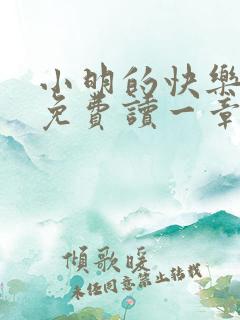 小明的快樂
免費讀一章
傾歌暖
未经同意禁止转载